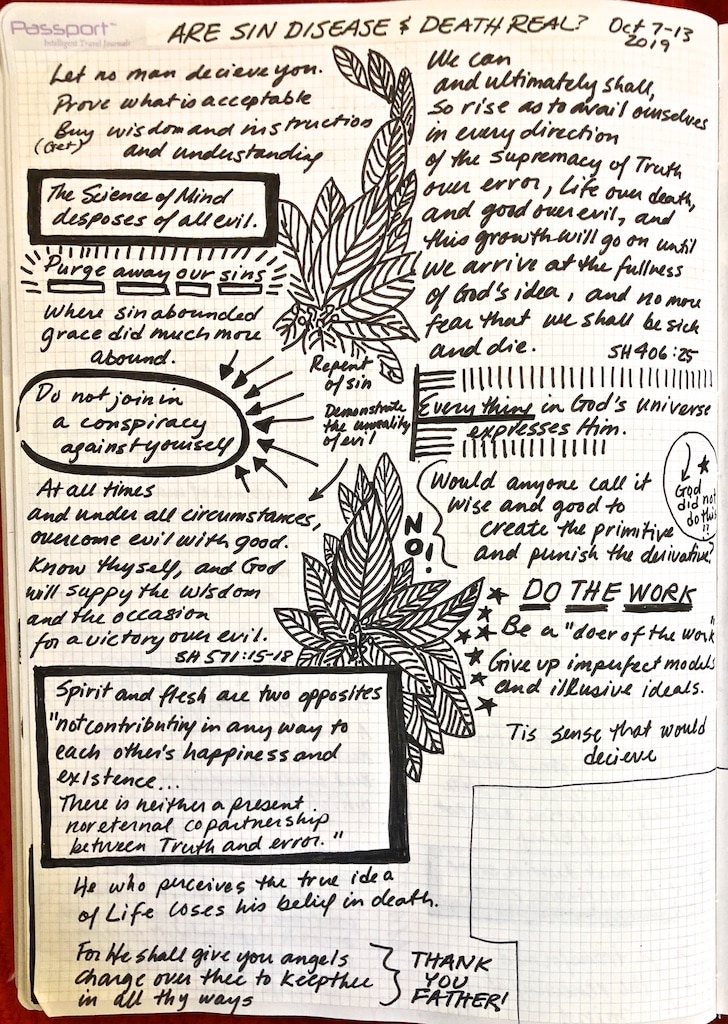 Passport™
Intelligent Travel Journals
ARE SIN DISEASE & DEATH REAL?
Oct 7-13
2019
Let no man decieve you.
Prove what is acceptable
Buy wisdom and instruction
(Get)
and understanding
The Science of Mind
desposes of all evil.
Purge away our sins
Where sin abounded
grace did much more
abound.
Repent
of sin
Demonstrate
the unreality
of evil
Do not join in
a conspiracy
against yourself
At all times
and under all circumstances,
overcome evil with good.
Know thyself, and God
will suppy the wisdom
and the occasion
for a victory over evil.
SH 571:15-18
Spirit and flesh are two opposites
"not contributing in any way to
each other's happiness and
existence...
There is neither a present
nor eternal copartnership
between Truth and error."
He who perceives the true idea
of Life loses his belief in death.
For He shall give you angels
charge over thee to keep thee
in all thy ways
THANK
YOU
FATHER!
We can
and ultimately shall,
so rise as to avail ourselves
in every direction
of the supremacy of Truth
over error, Life over death,
and good over evil, and
this growth will go on until
we arrive at the fullness
of God's idea, and no more
fear that we shall be sick
and die.
SH 406:25
Everything in God's universe
expresses Him.
Would anyone call it
wise and good to
create the primitive
and punish the derivative?
NO!
God
did not
do this
!!
DO THE WORK
Be a "doer of the work"
Give up imperfect models
and illusive ideals.
Tis sense that would
decieve